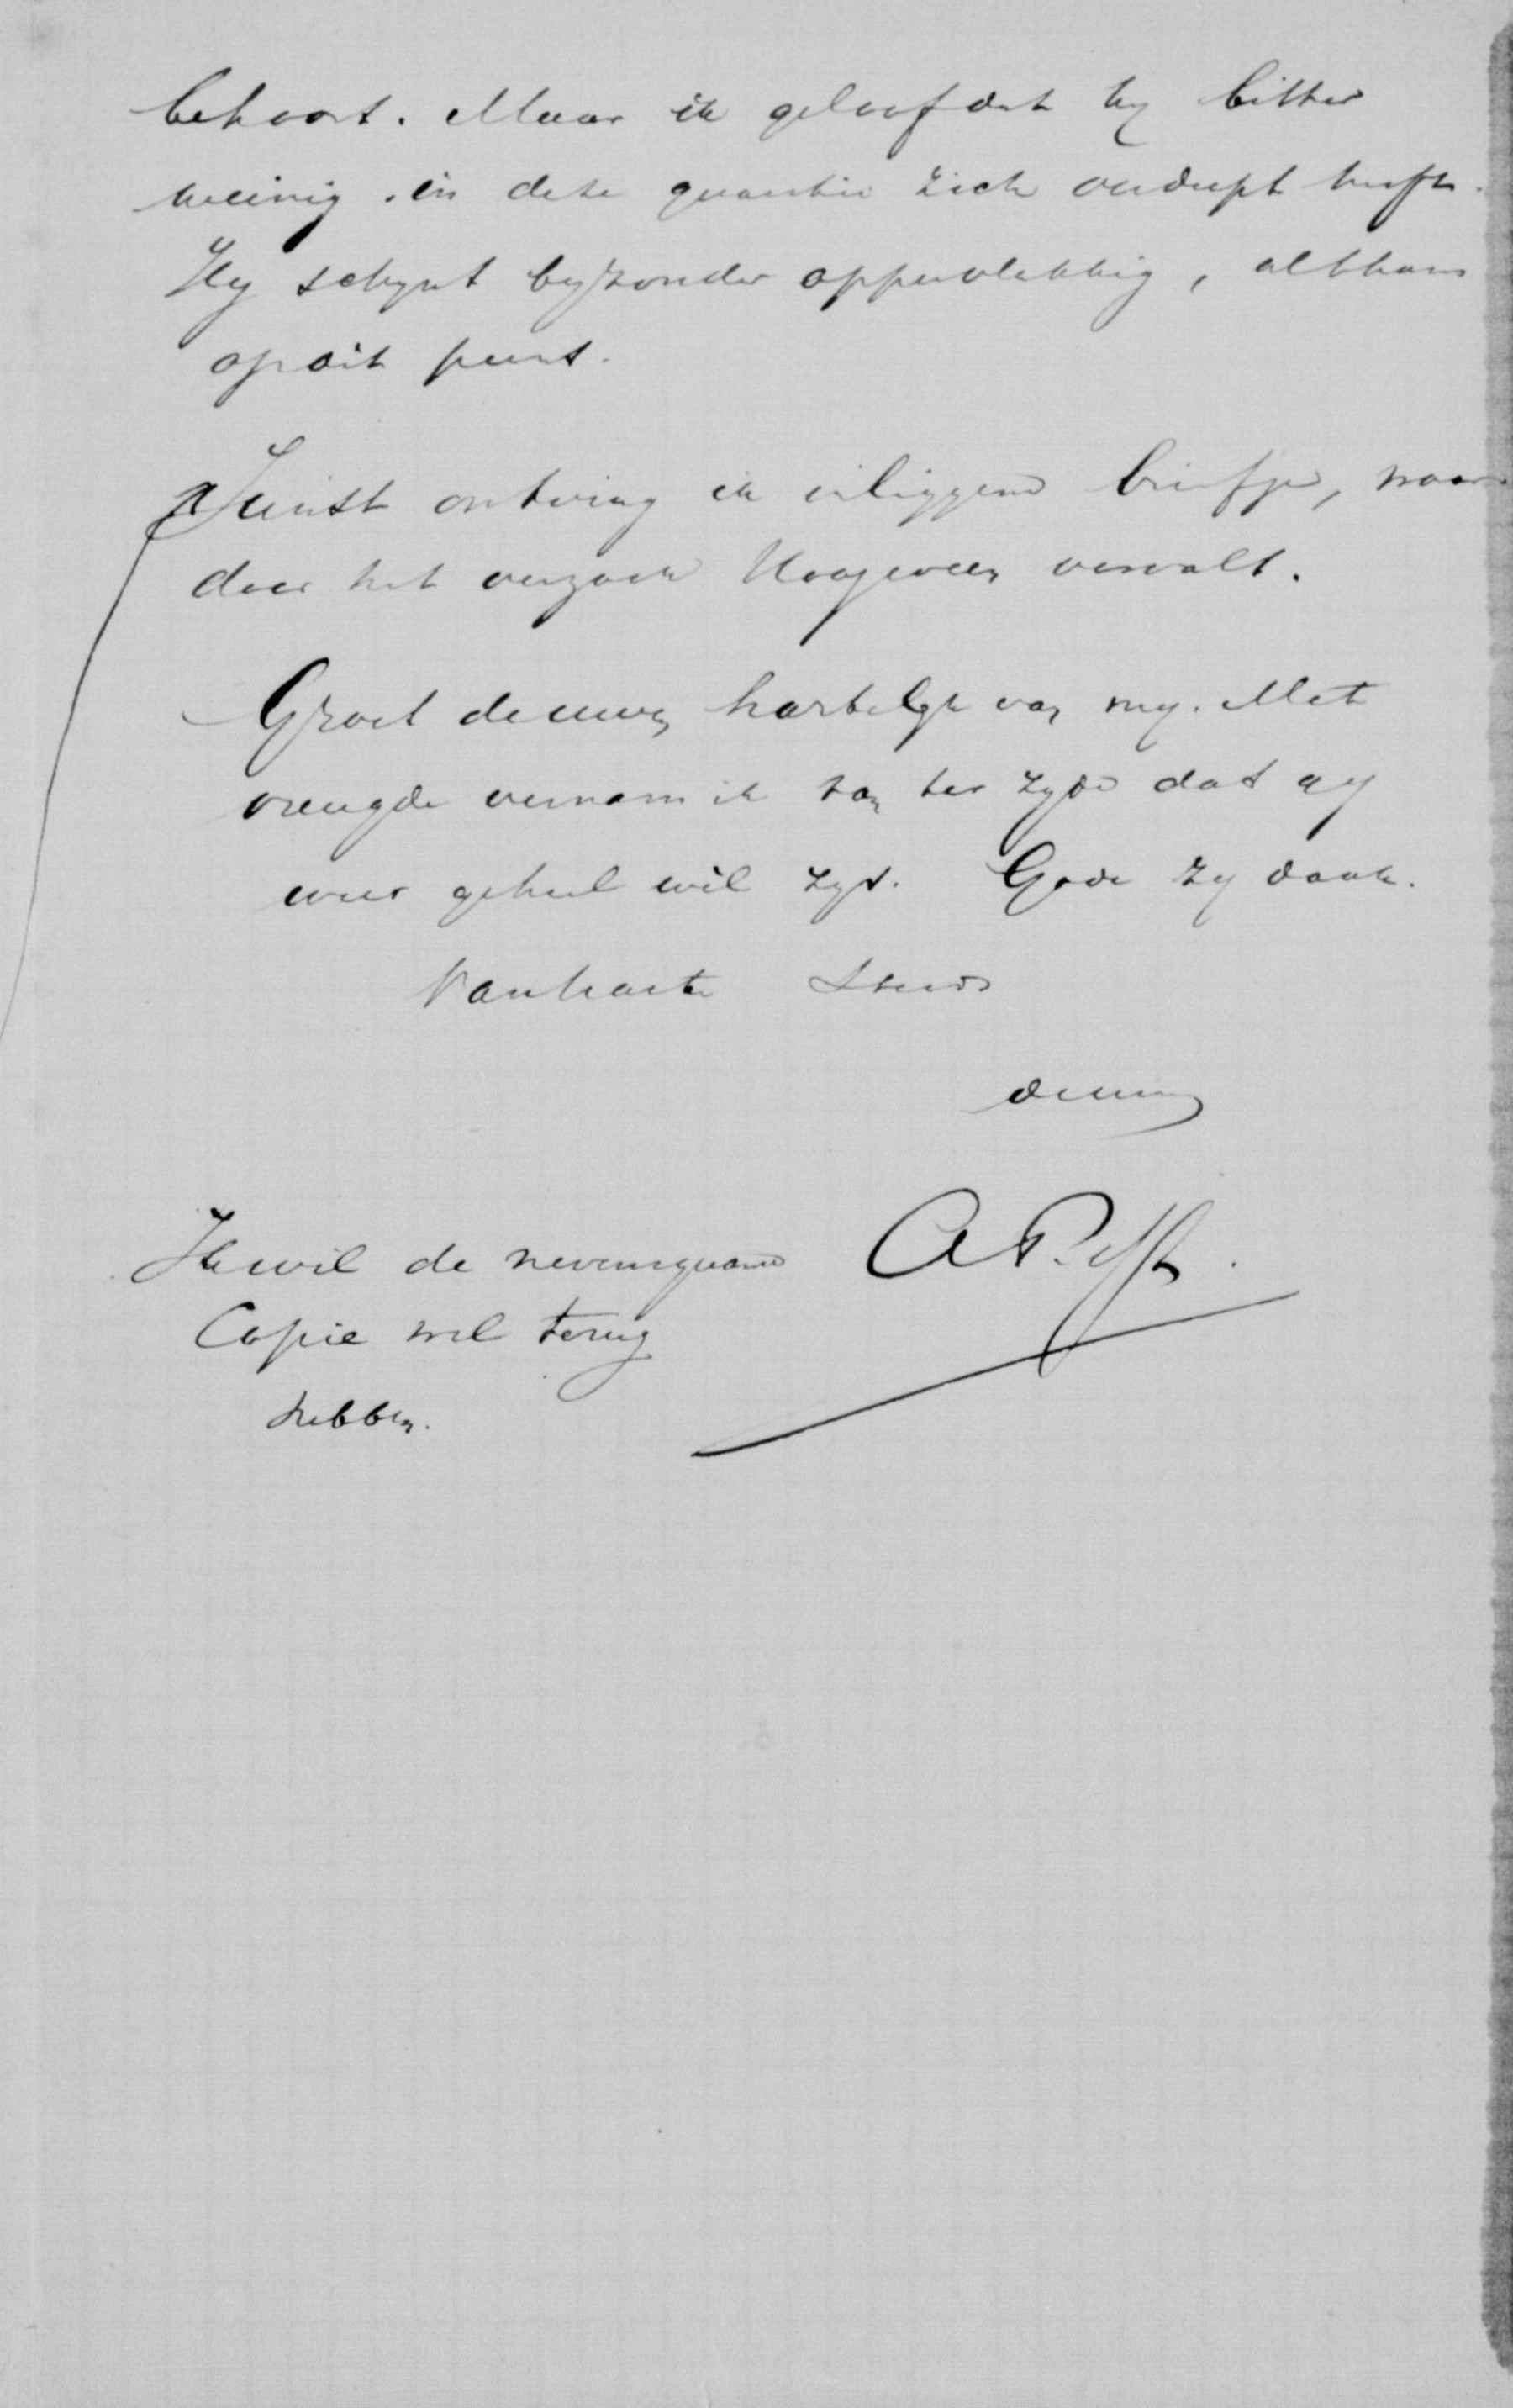 behoort. Maar ik geloof dat hy bitter
weinig in deze quaestie zich verdiept heeft.
Hy schynt byzonder oppervlakkig, althans
op dit punt.
Juist ontving ik inliggend briefje, waar
door het verzoek Hoogeveen vervalt.
Groet de uwen hartelyk van my. Met
vreugde vernam ik van ter zyde dat gy
weer geheel wel zyt. Gode zy dank.
Van harte Steeds
de uwe
Ik wil de nevensgaande
Copie wel terug
hebben.